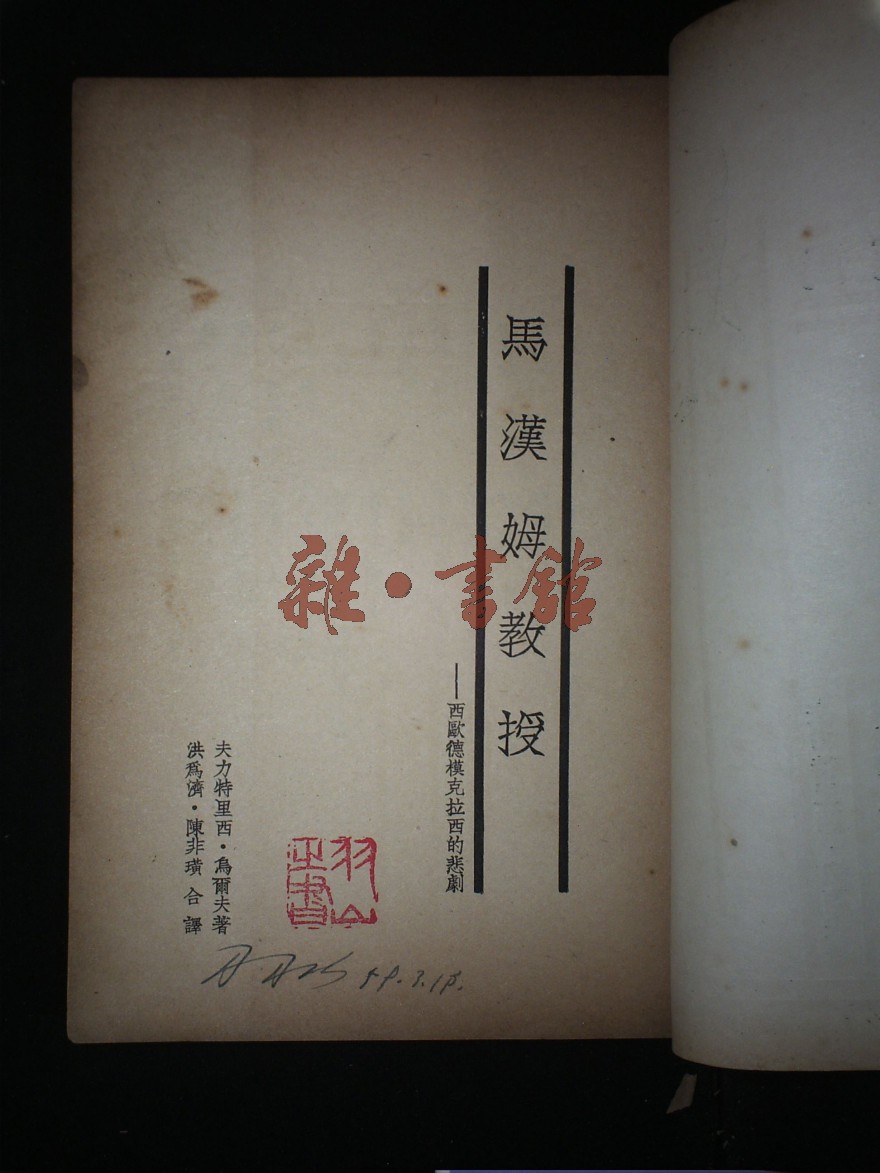 馬漢姆教授
——西歐德模克拉西的悲劇
夫力特里西·烏爾夫著
洪爲濟·陳非璜 合譯
雜·書舘